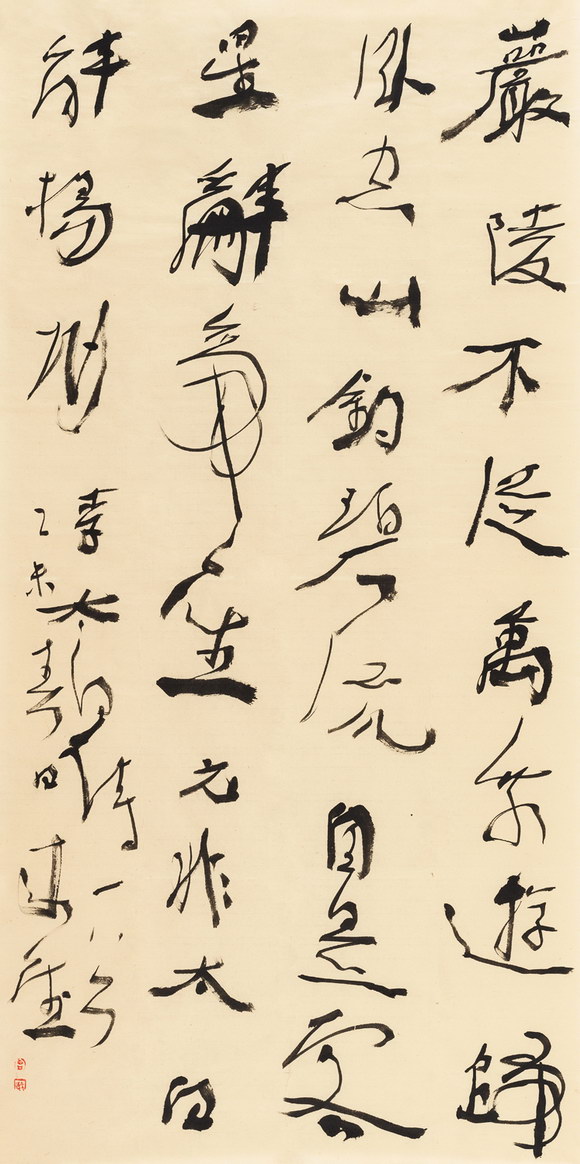 嚴陵不從萬乘遊歸
臥空山釣碧流自是客
星辭帝座元非太白
醉揚州 李太白詩一首
乙未春日